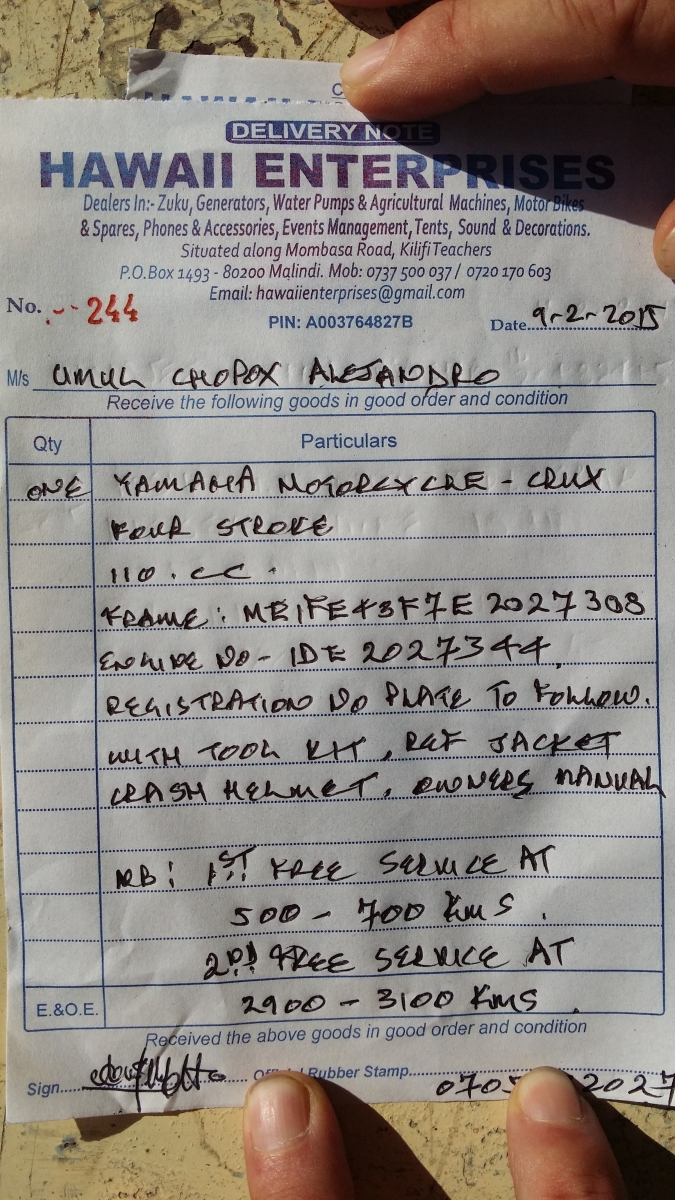 DELIVERY NOTE
HAWAII ENTERPRISES
Dealers In:- Zuku, Generators, Water Pumps & Agricultural Machines, Motor Bikes
& Spares, Phones & Accessories, Events Management, Tents, Sound & Decorations.
Situated along Mombasa Road, Kilifi Teachers
P.O.Box 1493 - 80200 Malindi. Mob: 0737 500 037 / 0720 170 603
Email: hawaiienterprises@gmail.com
No. 244
PIN: A003764827B
Date 9-2-2015
M/s UMUL CHOPOX ALEJANDRO
Receive the following goods in good order and condition
Qty Particulars
ONE YAMAHA MOTORCYCLE - CRUX
FOUR STROKE
110.CC.
FRAME: ME1FE43F7E2027308
ENGINE NO - 1DE2027344.
REGISTRATION NO PLATE TO FOLLOW.
WITH TOOL KIT, REF JACKET
CRASH HELMET, OWNERS MANUAL
NB: 1ST FREE SERVICE AT
500 - 700 KMS.
2ND FREE SERVICE AT
E.&O.E. 2900 - 3100 KMS.
Received the above goods in good order and condition
Sign Rubber Stamp 2027